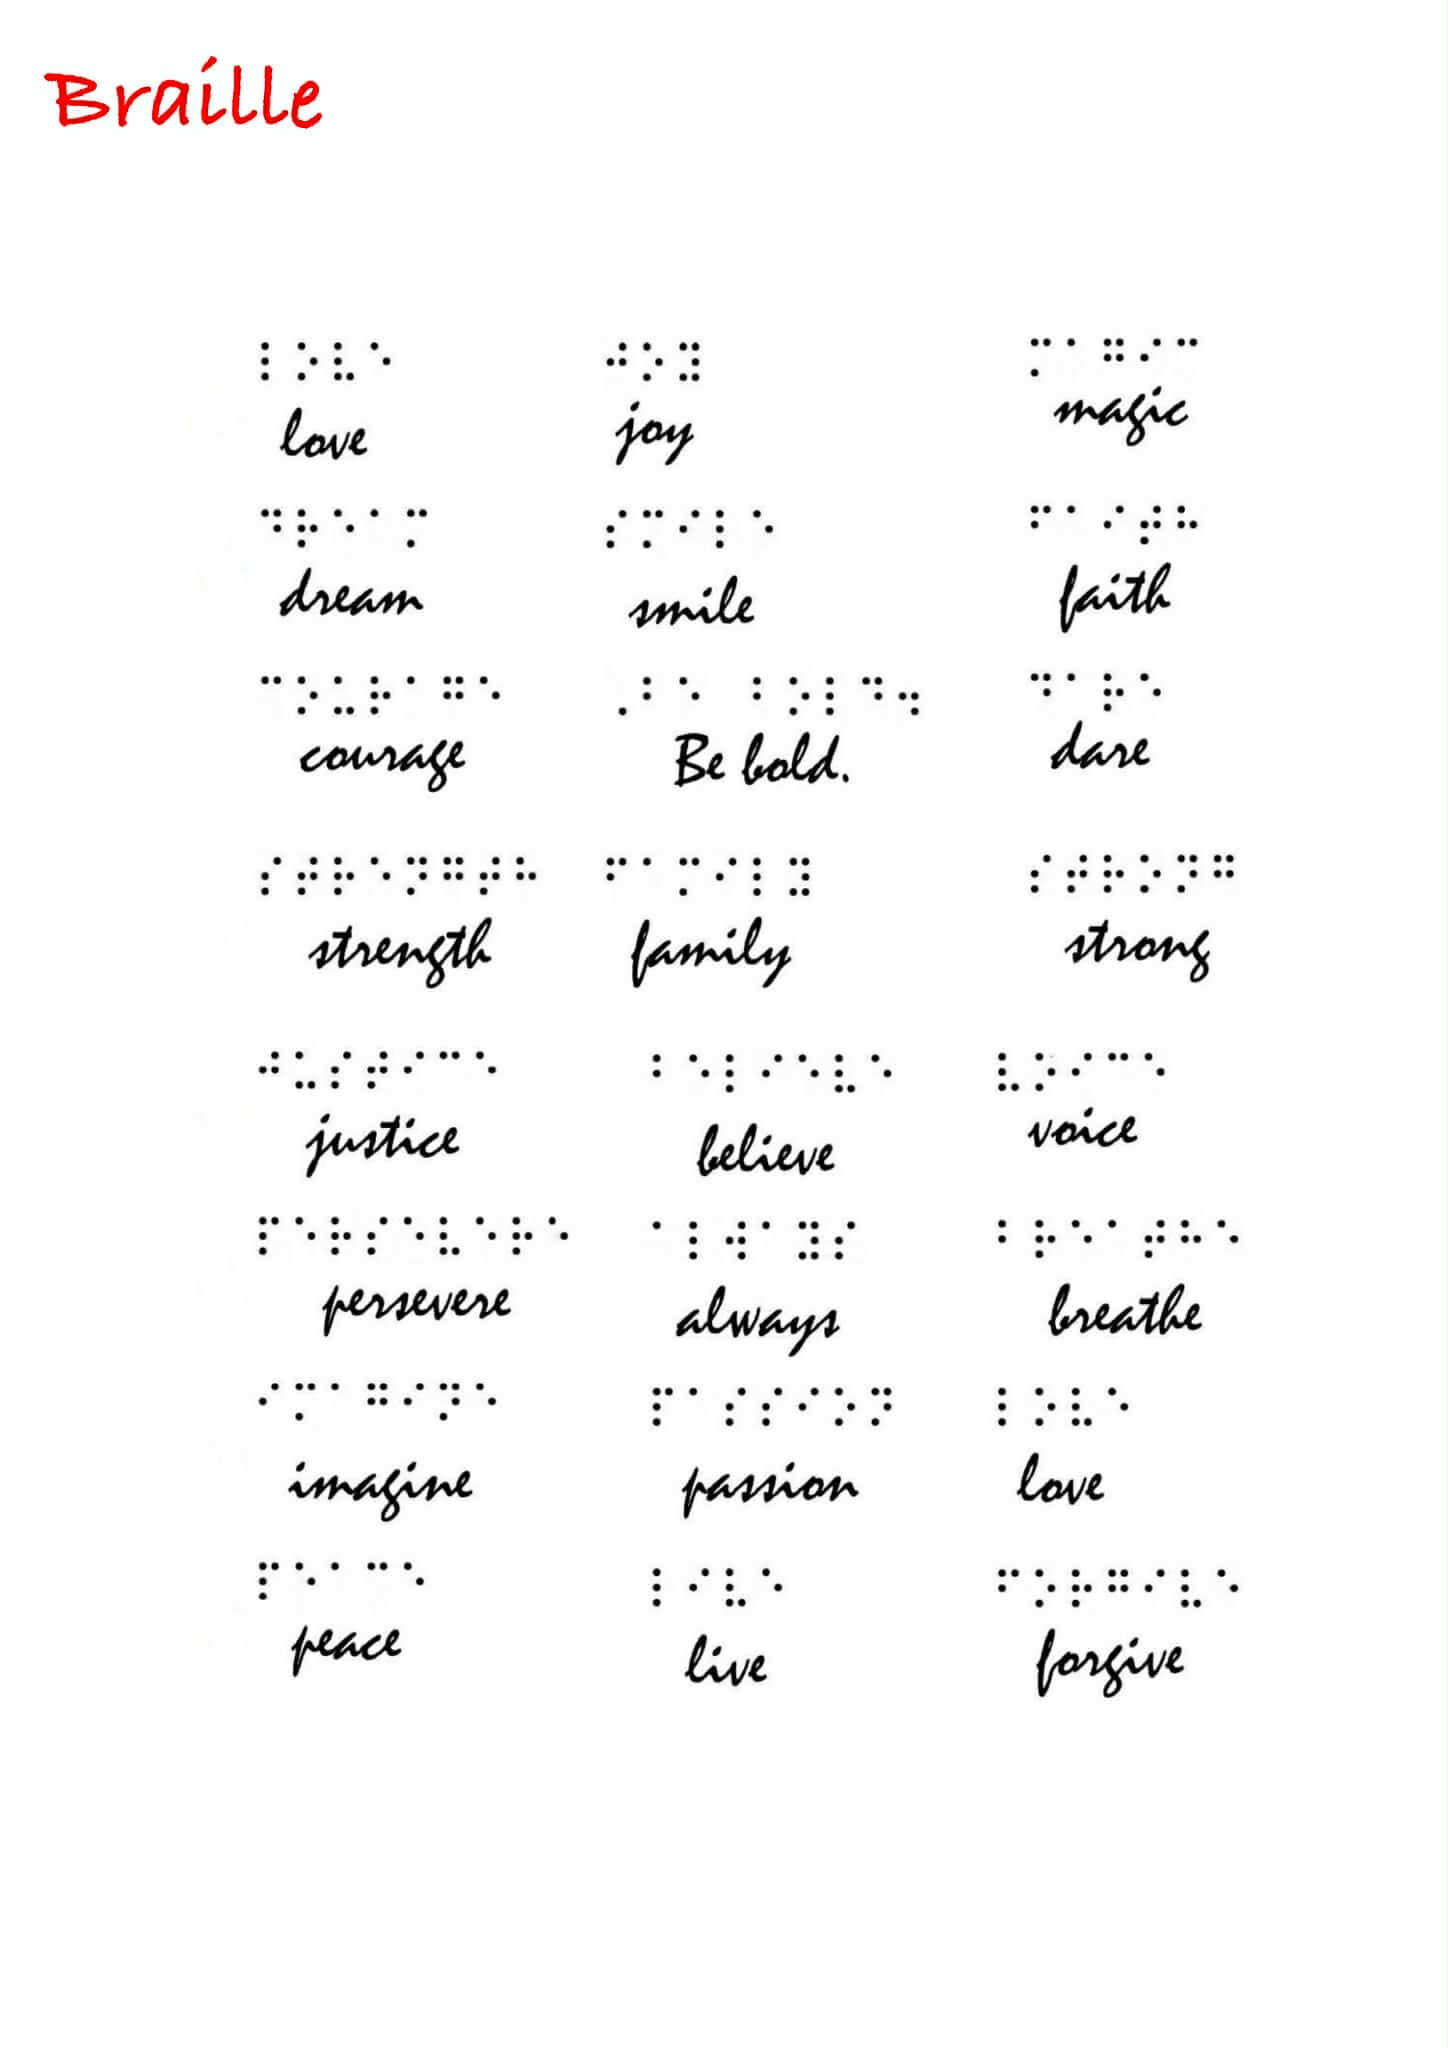 Braille
⠇⠕⠧⠑ ⠚⠕⠽ ⠍⠁⠛⠊⠉
love joy magic
⠙⠗⠑⠁⠍ ⠎⠍⠊⠇⠑ ⠋⠁⠊⠞⠓
dream smile faith
⠉⠕⠥⠗⠁⠛⠑ ⠠⠃⠑ ⠃⠕⠇⠙⠲ ⠙⠁⠗⠑
courage Be bold. dare
⠎⠞⠗⠑⠝⠛⠞⠓ ⠋⠁⠍⠊⠇⠽ ⠎⠞⠗⠕⠝⠛
strength family strong
⠚⠥⠎⠞⠊⠉⠑ ⠃⠑⠇⠊⠑⠧⠑ ⠧⠕⠊⠉⠑
justice believe voice
⠏⠑⠗⠎⠑⠧⠑⠗⠑ ⠁⠇⠺⠁⠽⠎ ⠃⠗⠑⠁⠞⠓⠑
persevere always breathe
⠊⠍⠁⠛⠊⠝⠑ ⠏⠁⠎⠎⠊⠕⠝ ⠇⠕⠧⠑
imagine passion love
⠏⠑⠁⠉⠑ ⠇⠊⠧⠑ ⠋⠕⠗⠛⠊⠧⠑
peace live forgive